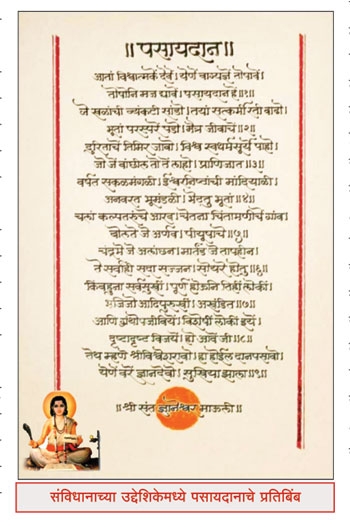 ॥ पसायदान ॥
आतां विश्वात्मकें देवें । येणें वाग्यज्ञें तोषावें ।
तोषोनि मज द्यावें । पसायदान हें ॥१॥
जे खळांची व्यंकटी सांडो । तयां सत्कर्मी रती वाढो ।
भूतां परस्परें पडो । मैत्र जीवाचें ॥२॥
दुरितांचें तिमिर जावो । विश्व स्वधर्मसूर्यें पाहो ।
जो जें वांछील तो तें लाहो । प्राणिजात ॥३॥
वर्षत सकळमंगळी । ईश्वरनिष्ठांची मांदियाळी ।
अनवरत भूमंडळी । भेटतु भूतां ॥४॥
चलां कल्पतरूंचे आरव । चेतना चिंतामणींचें गांव ।
बोलते जे अर्णव । पीयूषांचे ॥५॥
चंद्रमे जे अलांछन । मार्तंड जे तापहीन ।
ते सर्वांही सदा सज्जन । सोयरे होतु ॥६॥
किंबहुना सर्वसुखीं । पूर्ण होऊनि तिहीं लोकीं ।
भजिजो आदिपुरुखीं । अखंडित ॥७॥
आणि ग्रंथोपजीविये । विशेषीं लोकीं इयें ।
दृष्टादृष्ट विजयें । हो आवें जी ॥८॥
तेथ म्हणे श्रीविश्वेशरावो । हा होईल दानपसावो ।
येणें वरें ज्ञानदेवो । सुखिया झाला ॥९॥
॥ श्री संत ज्ञानेश्वर माऊली ॥
संविधानाच्या उद्देशिकेमध्ये पसायदानाचे प्रतिबिंब